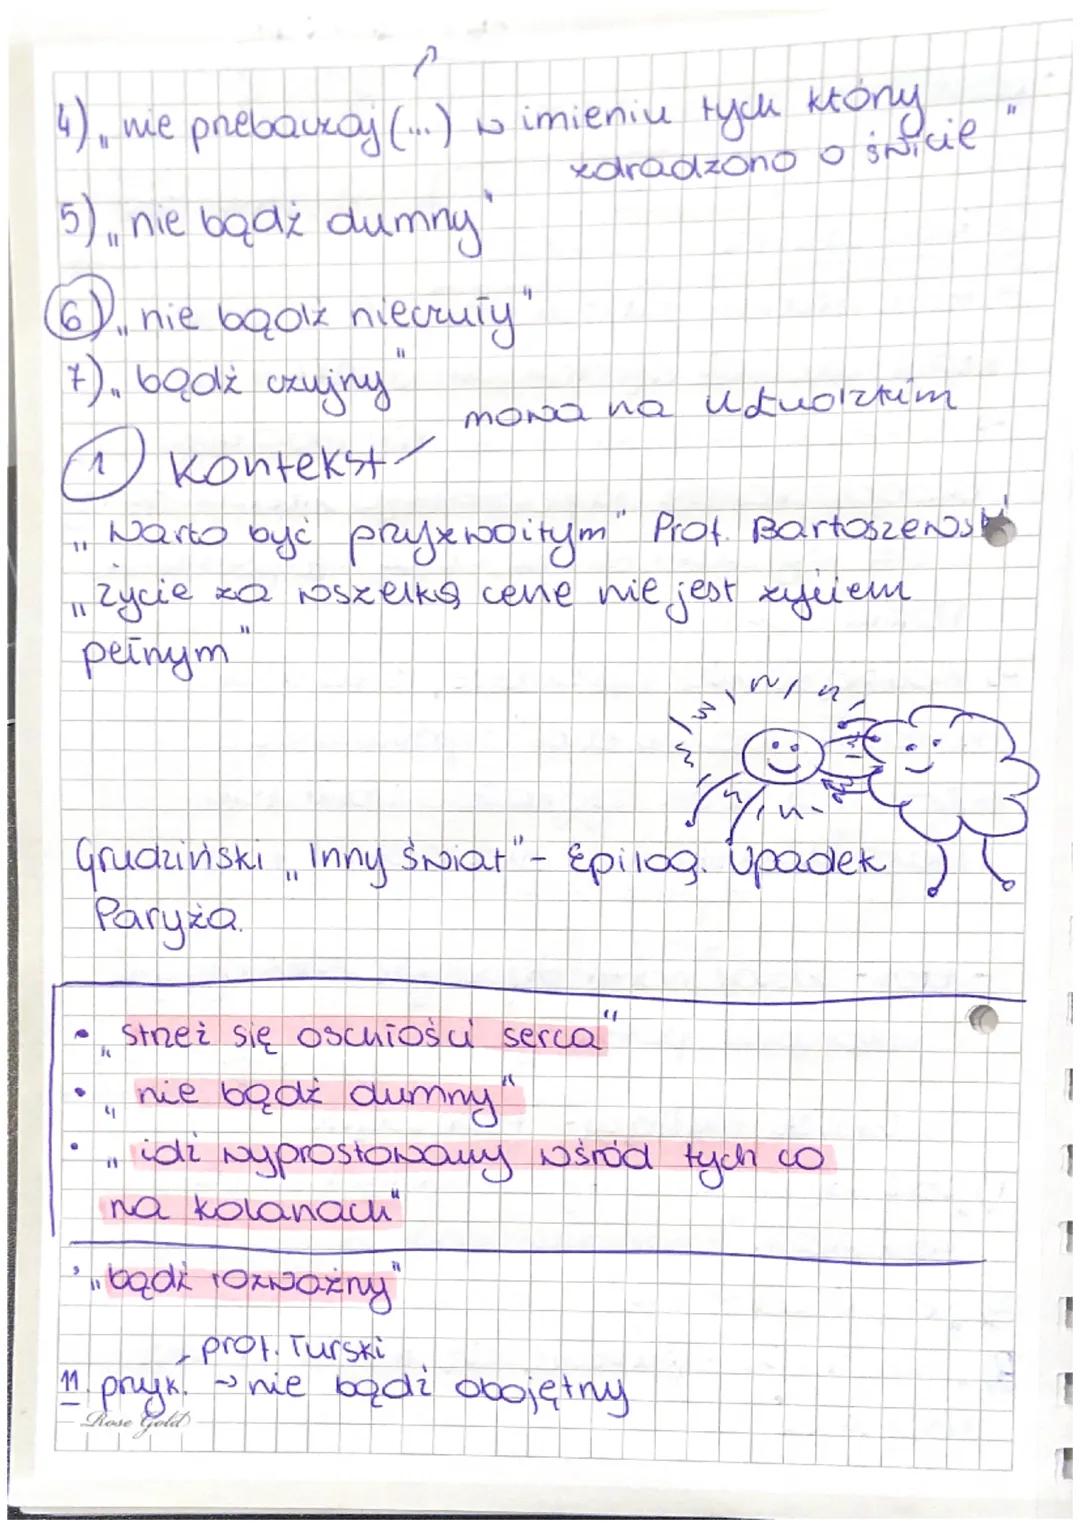 4) „nie przebaczaj (...) w imieniu tych który
zdradzono o świcie"
5) „nie bądź dumny"
6) „nie bądź nieczuły"
7) „bądź czujny"
mowa na
1 Kontekst
„Warto być przyzwoitym" Prof. Bartoszewski
„życie za wszelką cene nie jest życiem
pełnym"
Grudziński „Inny świat" - Epilog. Upadek
Paryża.
• „strzeż się oschłości serca"
• „nie bądź dumny"
• „idź wyprostowany wśród tych co
na kolanach"
• „bądź rozważny"
prof. Turski
11. przyk. → nie bądź obojętny
Rose Gold